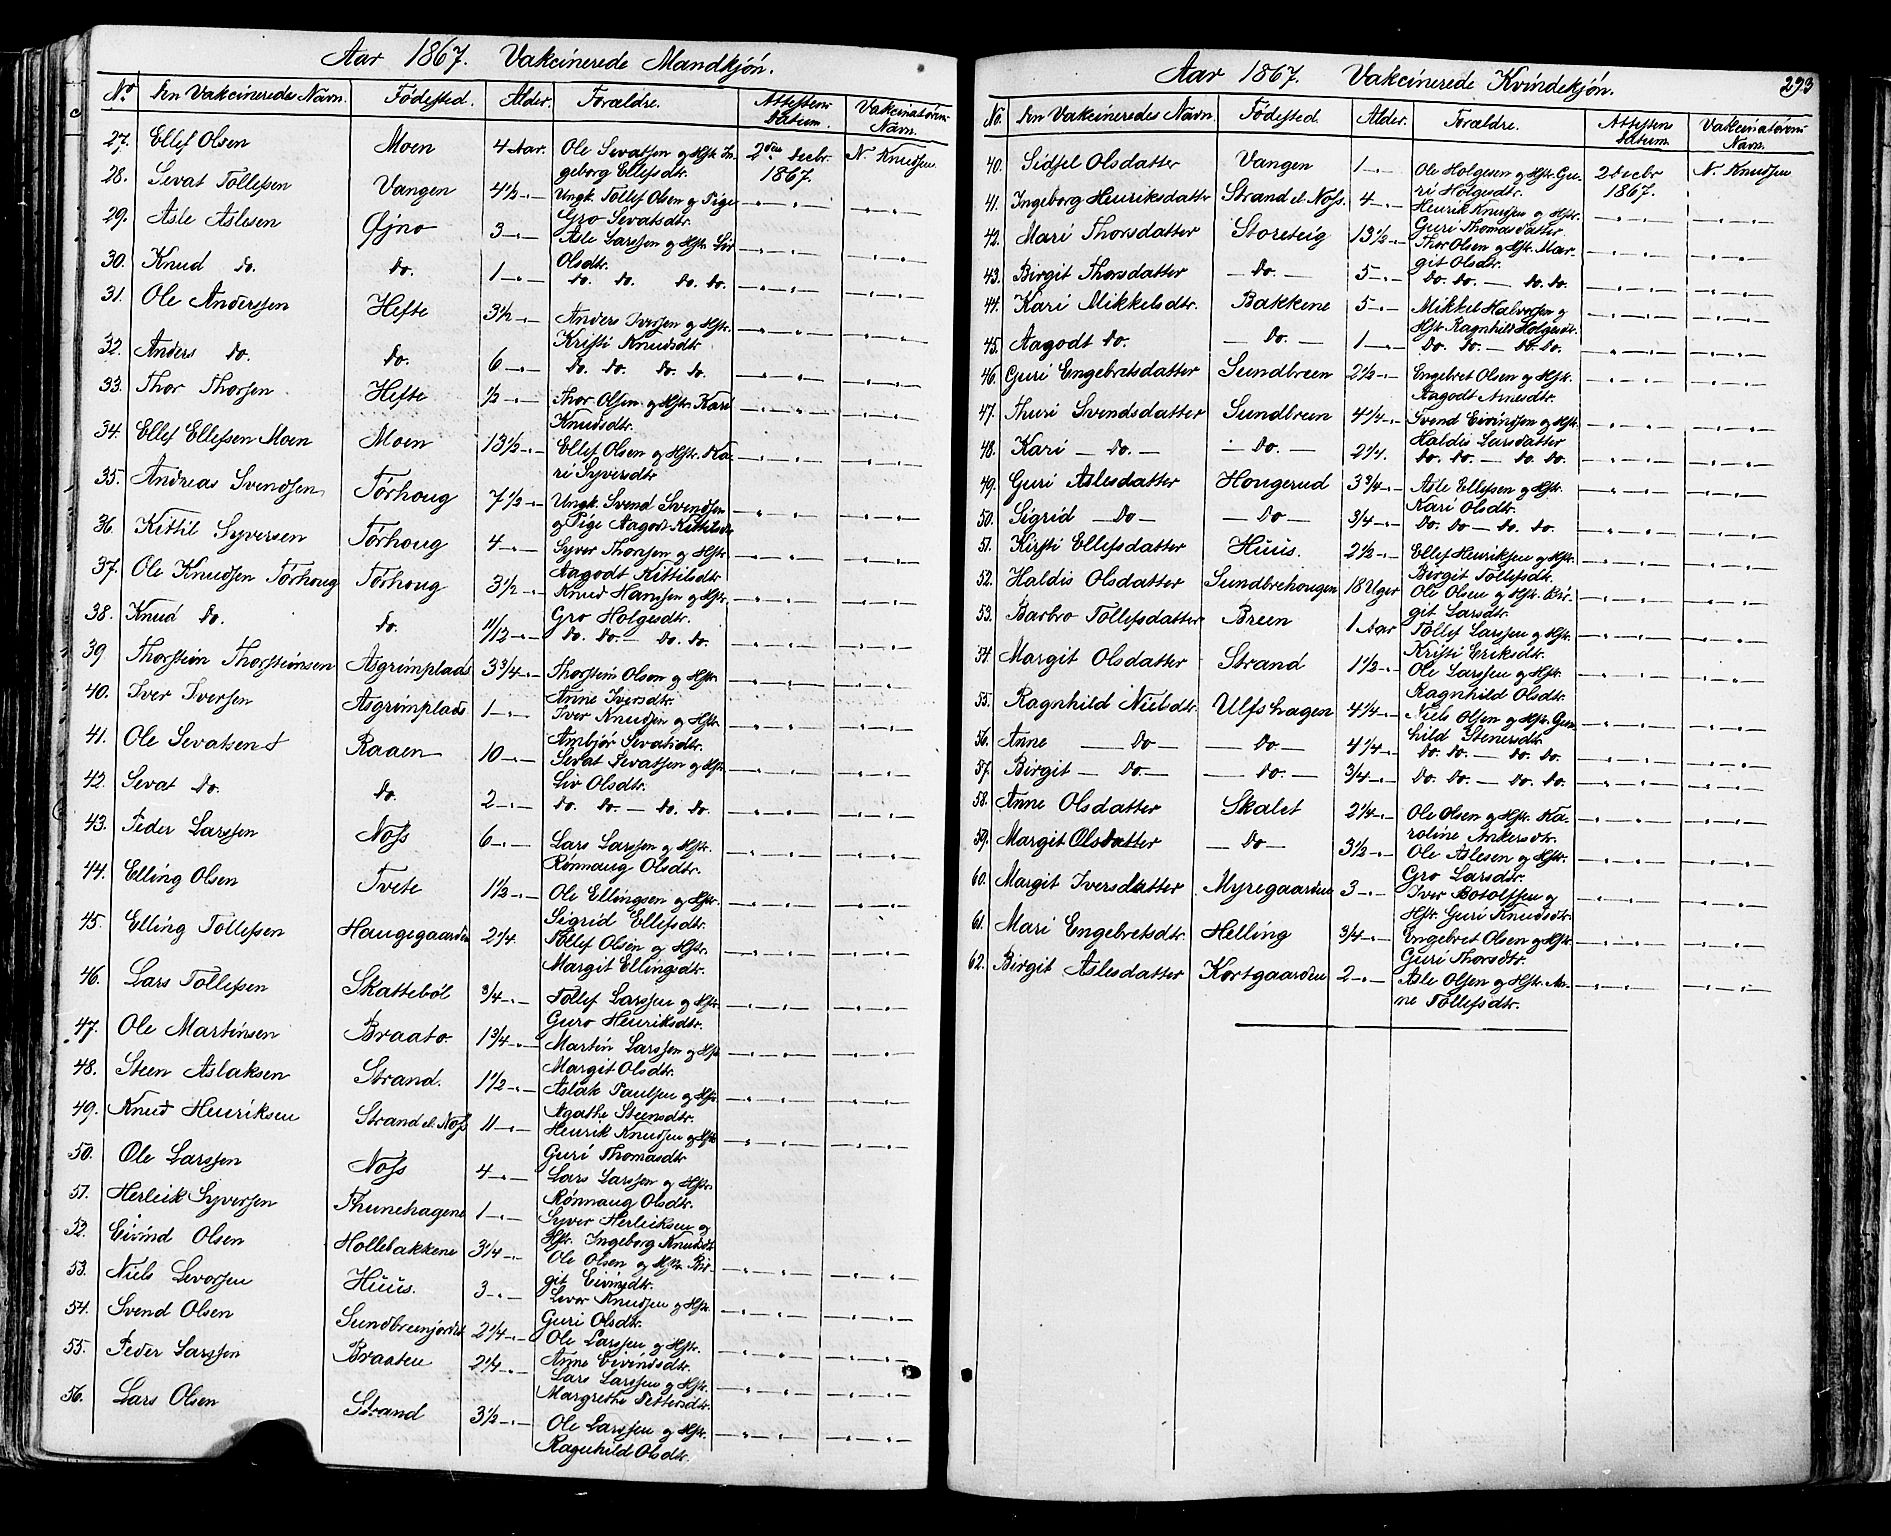 Aar 1867. Vakcinerede Mandkjön.
No. Den Vakcineredes Navn. Födested. Alder. Forældre. Attestens Datum. Vakcinatörens Navn.
27. Ellef Olsen Moen 4 Aar. Ole Sevatsen og Hstr. In-
geborg Ellefsdtr. 2den Decbr. 1867. N. Knudsen
28. Sevat Tollefsen Vangen 4 1/2 -"- Ungk. Tollef Olsen og Pige
Gro Sevatsdtr.
29. Asle Aslesen Øjno 3 -"- Asle Larssen og Hstr. Liv
Olsdtr.
30. Knud do. do. 1 -"- do. do. do. do.
31. Ole Anderssen Hefte 3 1/2 -"- Anders Iversen og Hstr.
Kristi Knudsdtr.
32. Anders do. do. 6 -"- do. do. do. do.
33. Thor Thorsen Hefte 1/2 -"- Thor Olsen og Hstr. Kari
Knudsdtr.
34. Ellef Ellefsen Moen Moen 13 1/2 -"- Ellef Olsen og Hstr. Ka-
ri Syversdtr
35. Andreas Svendsen Törhoug 7 1/2 -"- Ungk. Svend Svendsen
og Pige Aagodt Kittilsdtr
36. Kittil Syversen Törhoug 4 -"- Syver Thorsen og Hstr
Aagodt Kittilsdtr
37. Ole Knudsen Törhoug Törhoug 3 1/2 -"- Knud Hanssen og Hstr.
Gro Holgesdtr.
38. Knud Do. do. 11/12 -"- do. do. — do. do.
39 Thorstein Thorsteinsen Asgrimplads 3 3/4 -"- Thorstein Olsen og Hstr.
Anne Iversdtr.
40. Iver Iversen Asgrimplads 1 -"- Iver Knudsen og Hstr
Ambjör Sevatsdtr.
41. Ole Sevatsen Raaen 10 -"- Sevat Sevatsen og Hstr.
Liv Olsdtr.
42. Sevat Do. do. 2 -"- do. do. — do. do.
43. Peder Larssen Noss 6 -"- Lars Larssen og Hstr.
Rönnaug Olsdtr.
44. Elling Olsen Tvete 1 1/2 -"- Ole Ellingsen og Hstr.
Sigrid Ellefsdtr.
45. Elling Tollefsen Haugegaarden 2 1/4. Tollef Olsen og Hstr.
Margit Ellingsdtr.
46. Lars Tollefsen Skatteböl 3/4 -"- Tollef Larssen og Hstr
Guro Henriksdtr.
47. Ole Martinsen Braato 1 3/4 -"- Martin Larssen og Hstr
Margit Olsdtr.
48. Steen Aslaksen Strand. 1 1/2 -"- Aslak Paulsen og Hstr
Agathe Steensdtr.
49. Knud Henriksen Strand el. Noss 11 -"- Henrik Knudsen og Hstr
Guri Thomasdtr
50. Ole Larssen Noss 4 -"- Lars Larssen og Hstr.
Rönnaug Olsdtr.
51. Herleik Syversen Thunehagene 1 -"- Syver Herleiksen og
Hstr. Ingeborg Knudsdtr
52. Eivind Olsen Hollebakkene 3 1/4 -"- Ole Olsen og Hstr. Bir-
git Eivindsdtr.
53. Niels Levorsen Huus. 3 -"- Levor Knudsen og Hstr.
Guri Olsdtr.
54. Svend Olsen Sundbreenjordet 2 1/4 -"- Ole Larssen og Hstr.
Anne Eivindsdtr.
55. Peder Larssen Braaten 2 1/4 -"- Lars Larssen og Hstr.
Margrethe Pettersdtr
56. Lars Olsen Strand 3 1/2 -"- Ole Larssen og Hstr.
Ragnhild Olsdtr.
Aar 1867. Vakcinerede Kvindekjön. 293
No. Den Vakcineredes Navn. Födested. Alder. Forældre. Attestens Datum. Vakcinatörens Navn.
40. Sidsel Olsdatter Vangen 1 -"- Ole Holgesen og Hstr. Gu-
ri Holgesdtr. 2 Decbr 1867. N. Knudsen
41. Ingeborg Henriksdatter Strand el. Noss. 4 -"- Henrik Knudsen og Hstr.
Guri Thomasdatter
42. Mari Thorsdatter Storeteig 13 1/2 -"- Thor Olsen og Hstr. Mar-
git Olsdtr.
43. Birgit Thorsdatter — Do. — 5 -"- Do. Do. — Do. Do.
44. Kari Mikkelsdtr. Bakkene 5 -"- Mikkel Halvorsen og
Hstr. Ragnhild Holgesdtr.
45. Aagodt do. — Do. — 1 -"- Do. Do. — Do. Do.
46. Guri Engebretsdatter Sundbreen 2 1/2 -"- Engebret Olsen og Hstr.
Aagodt Arnesdtr.
47. Thuri Svendsdatter Sundbreen 4 1/4 -"- Svend Eivindsen og Hstr.
Haldis Larsdatter
48. Kari — Do. — — Do. — 2 1/4. Do. Do. — Do. Do.
49. Guri Aslesdatter Hougerud 3 3/4 -"- Asle Ellefsen og Hstr.
Kari Olsdtr.
50. Sigrid — Do — — Do — 3/4 -"- Do. Do — Do. Do.
51. Kirsti Ellefsdatter Huus. 2 1/2 -"- Ellef Henriksen og Hstr.
Birgit Tollefsdtr.
52. Haldis Olsdatter Sundbrehougen 18 Uger Ole Olsen og Hstr. Bir-
git Larsdtr.
53. Barbro Tollefsdatter Breen 1 Aar Tollef Larssen og Hstr.
Kristi Eriksdtr.
54. Margit Olsdatter Strand 1 1/2 -"- Ole Larssen og Hstr.
Ragnhild Olsdtr.
55. Ragnhild Nielsdtr. Ulfshagen 4 1/4 -"- Niels Olsen og Hstr. Gun-
hild Stenersdtr.
56. Anne — Do — — Do — 4 1/4 -"- Do. Do. — Do. Do.
57. Birgit — Do. — — Do. — 3/4 -"- Do. Do. — Do. Do.
58. Anne Olsdatter Skalet 2 1/4 -"- Ole Olsen og Hstr. Ka-
roline Andersdtr.
59. Margit Olsdatter — Do — 3 1/2 -"- Ole Aslesen og Hstr.
Gro Larsdtr.
60. Margit Iversdatter Myregaarden 3 -"- Iver Botolfsen og
Hstr. Guri Knudsdtr.
61. Mari Engebretsdtr. Helling 3/4 -"- Engebret Olsen og Hstr.
Guri Thorsdtr.
62. Birgit Aslesdatter Kortgaarden 2 -"- Asle Olsen og Hstr. An-
ne Tollefsdtr.